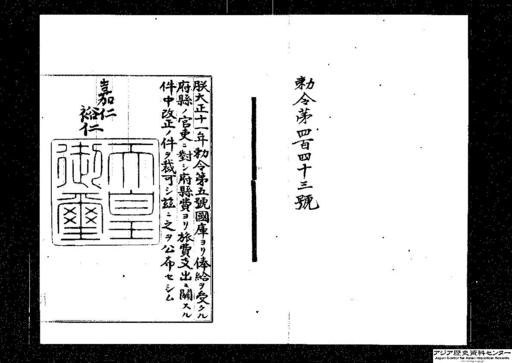 勅令第四百四十三號
朕大正十一年勅令第五號國庫ヨリ俸給ヲ受クル
府縣ノ官吏ニ對シ府縣費ヨリ旅費支出ニ關スル
件中改正ノ件ヲ裁可シ茲ニ之ヲ公布セシム
嘉仁
裕仁
天皇
御璽
アジア歴史資料センター
Japan Center for Asian Historical Records